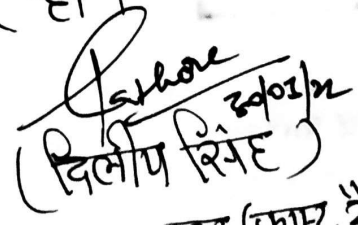 Rathore
30/01/22
(दिलीप सिंह)